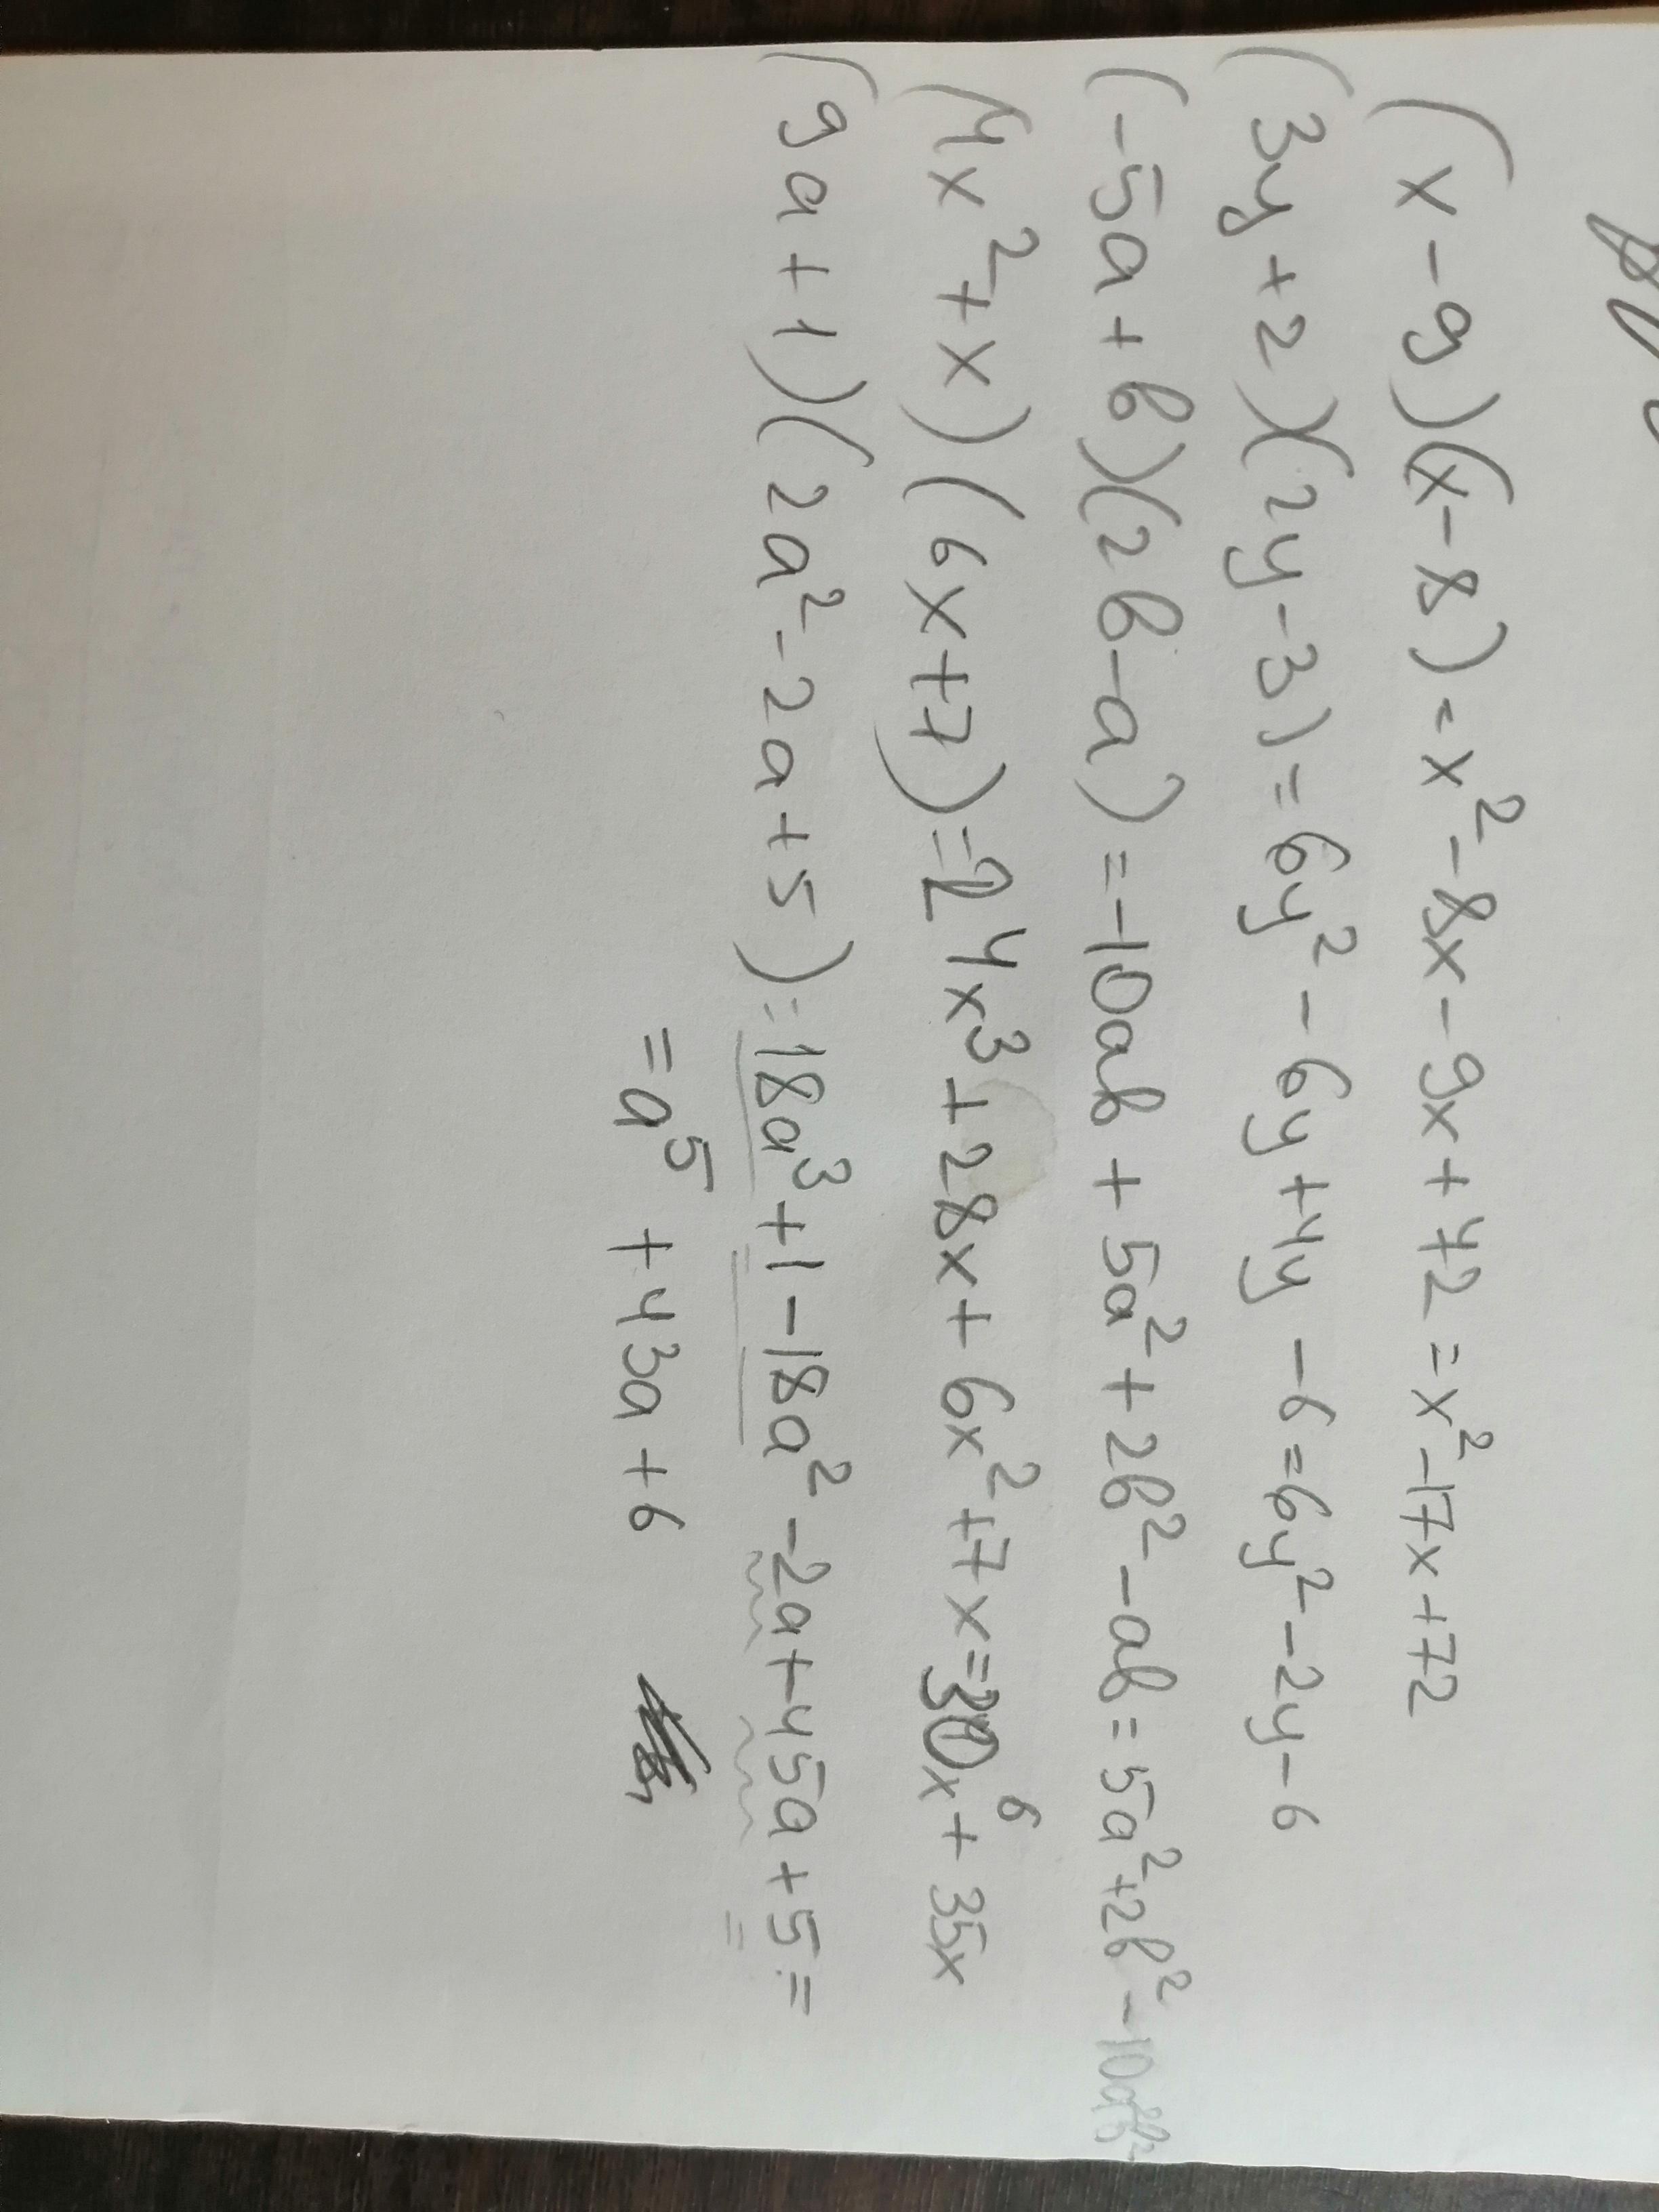 (x-9)(x-8)=x²-8x-9x+72=x²-17x+72
(3y+2)(2y-3)=6y²-6y+4y-6=6y²-2y-6
(-5a+b)(2b-a)=-10ab+5a²+2b²-ab=5a²+2b²-10a²b²
(4x²+x)(6x+7)=24x³+28x+6x²+7x=30x⁶+35x
(9a+1)(2a²-2a+5)=18a³+1-18a²-2a+45a+5=
=a⁵+43a+6